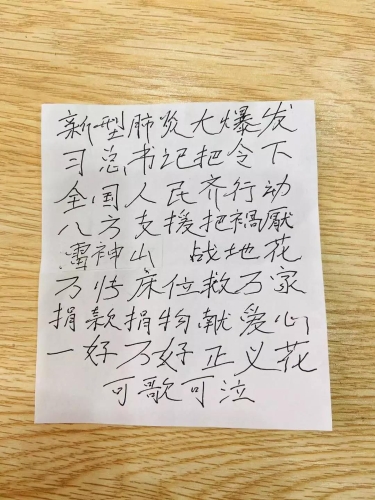 新型肺炎大爆发
习总书记把令下
全国人民齐行动
八方支援把禍厭
雷神山 战地花
万张床位救万家
捐款捐物献爱心
一好万好正义花
可歌可泣